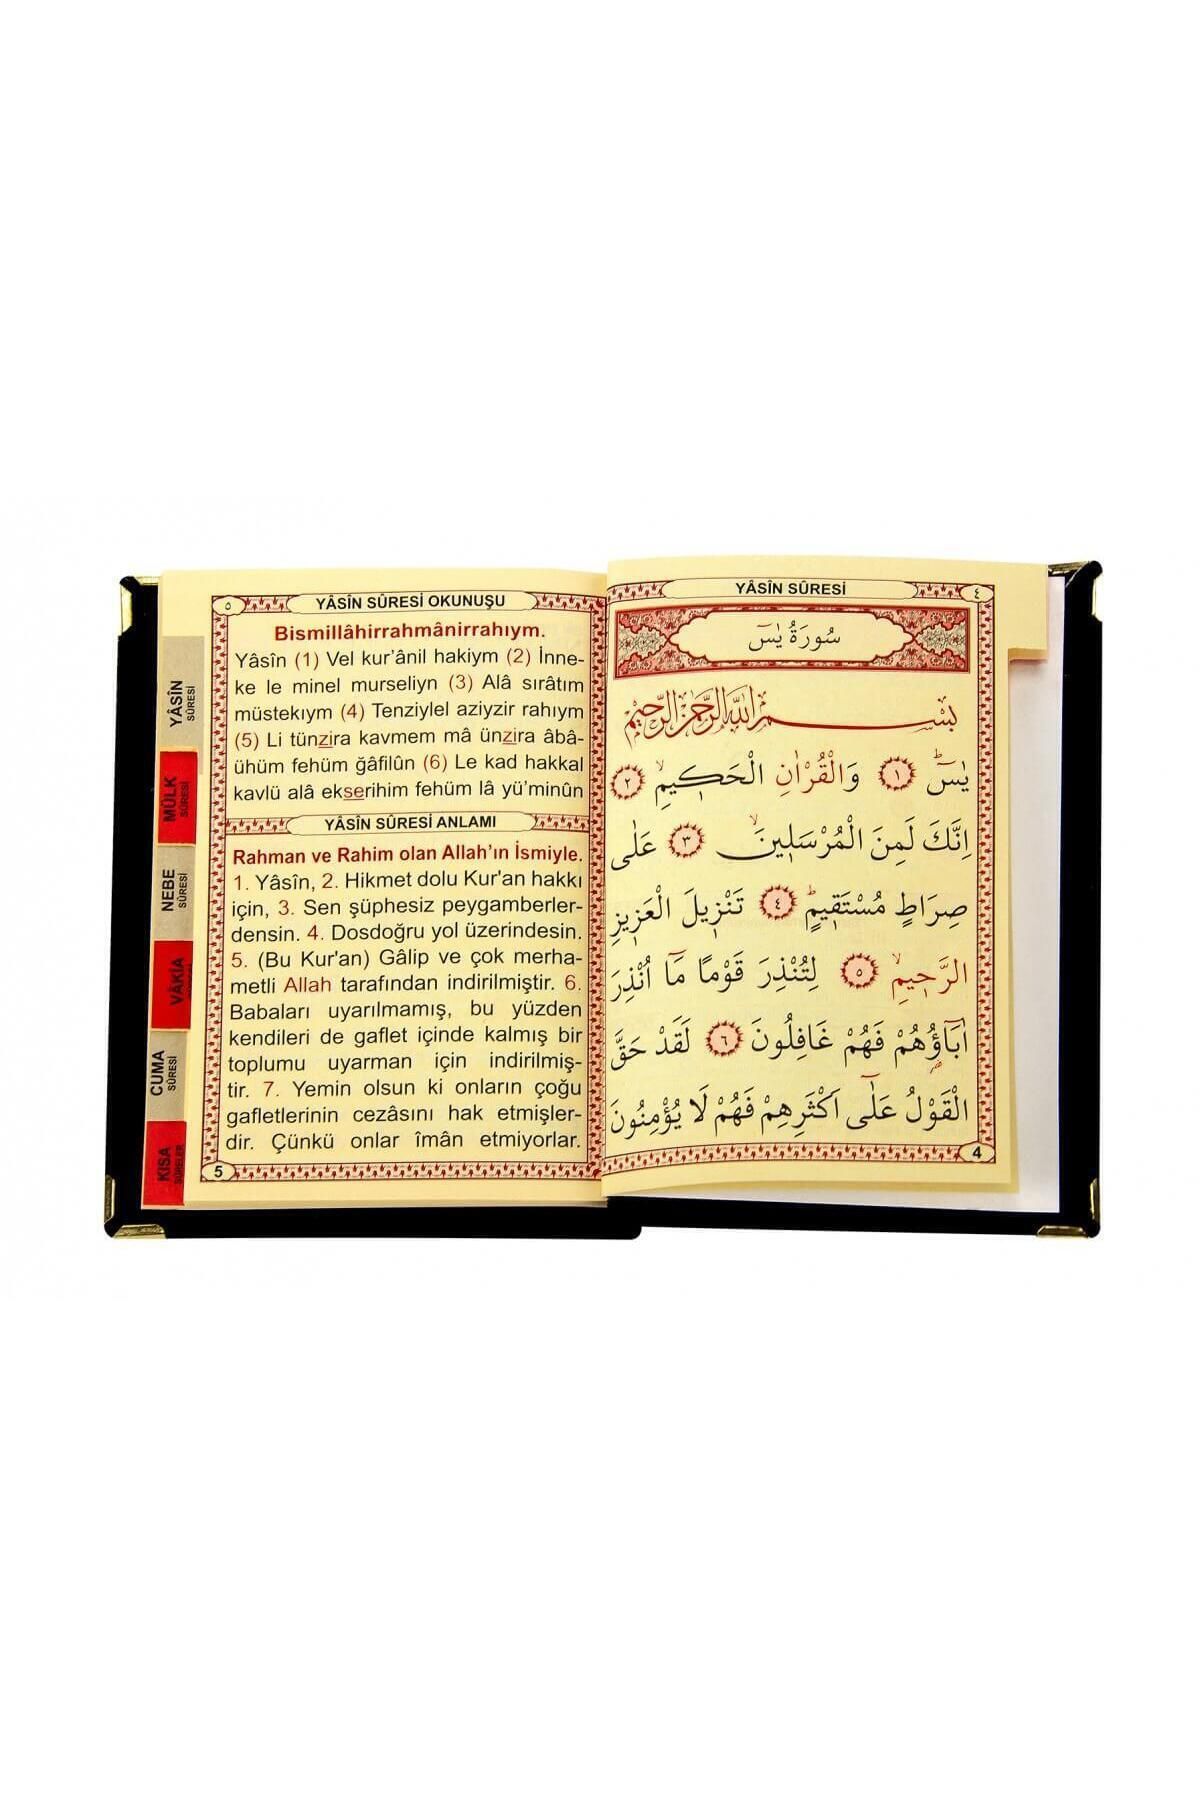 YÂSÎN SÛRESİ
٤
سُورَةُ يٰسٓ
بِسْمِ اللّٰهِ الرَّحْمٰنِ الرَّحِيمِ
يٰسٓ ﴿١﴾ وَالْقُرْاٰنِ الْحَكِيمِ ﴿٢﴾
اِنَّكَ لَمِنَ الْمُرْسَلِينَ ﴿٣﴾ عَلٰى
صِرَاطٍ مُسْتَقِيمٍ ﴿٤﴾ تَنْزِيلَ الْعَزِيزِ
الرَّحِيمِ ﴿٥﴾ لِتُنْذِرَ قَوْمًا مَٓا اُنْذِرَ
اٰبَٓاؤُهُمْ فَهُمْ غَافِلُونَ ﴿٦﴾ لَقَدْ حَقَّ
الْقَوْلُ عَلٰٓى اَكْثَرِهِمْ فَهُمْ لَا يُؤْمِنُونَ
4
٥
YÂSÎN SÛRESİ OKUNUŞU
Bismillâhirrahmânirrahıym.
Yâsîn (1) Vel kur’ânil hakiym (2) İnne-
ke le minel murseliyn (3) Alâ sırâtım
müstekıym (4) Tenziylel aziyzir rahıym
(5) Li tünzira kavmem mâ ünzira âbâ-
ühüm fehüm ğâfilûn (6) Le kad hakkal
kavlü alâ ekserihim fehüm lâ yü’minûn
YÂSÎN SÛRESİ ANLAMI
Rahman ve Rahim olan Allah’ın İsmiyle.
1. Yâsîn, 2. Hikmet dolu Kur'an hakkı
için, 3. Sen şüphesiz peygamberler-
densin. 4. Dosdoğru yol üzerindesin.
5. (Bu Kur'an) Gâlip ve çok merha-
metli Allah tarafından indirilmiştir. 6.
Babaları uyarılmamış, bu yüzden
kendileri de gaflet içinde kalmış bir
toplumu uyarman için indirilmiş-
tir. 7. Yemin olsun ki onların çoğu
gafletlerinin cezâsını hak etmişler-
dir. Çünkü onlar îmân etmiyorlar.
5
YÂSÎN
SÛRESİ
MÜLK
SÛRESİ
NEBE
SÛRESİ
VÂKIA
CUMA
SÛRESİ
KISA
SÛRELER